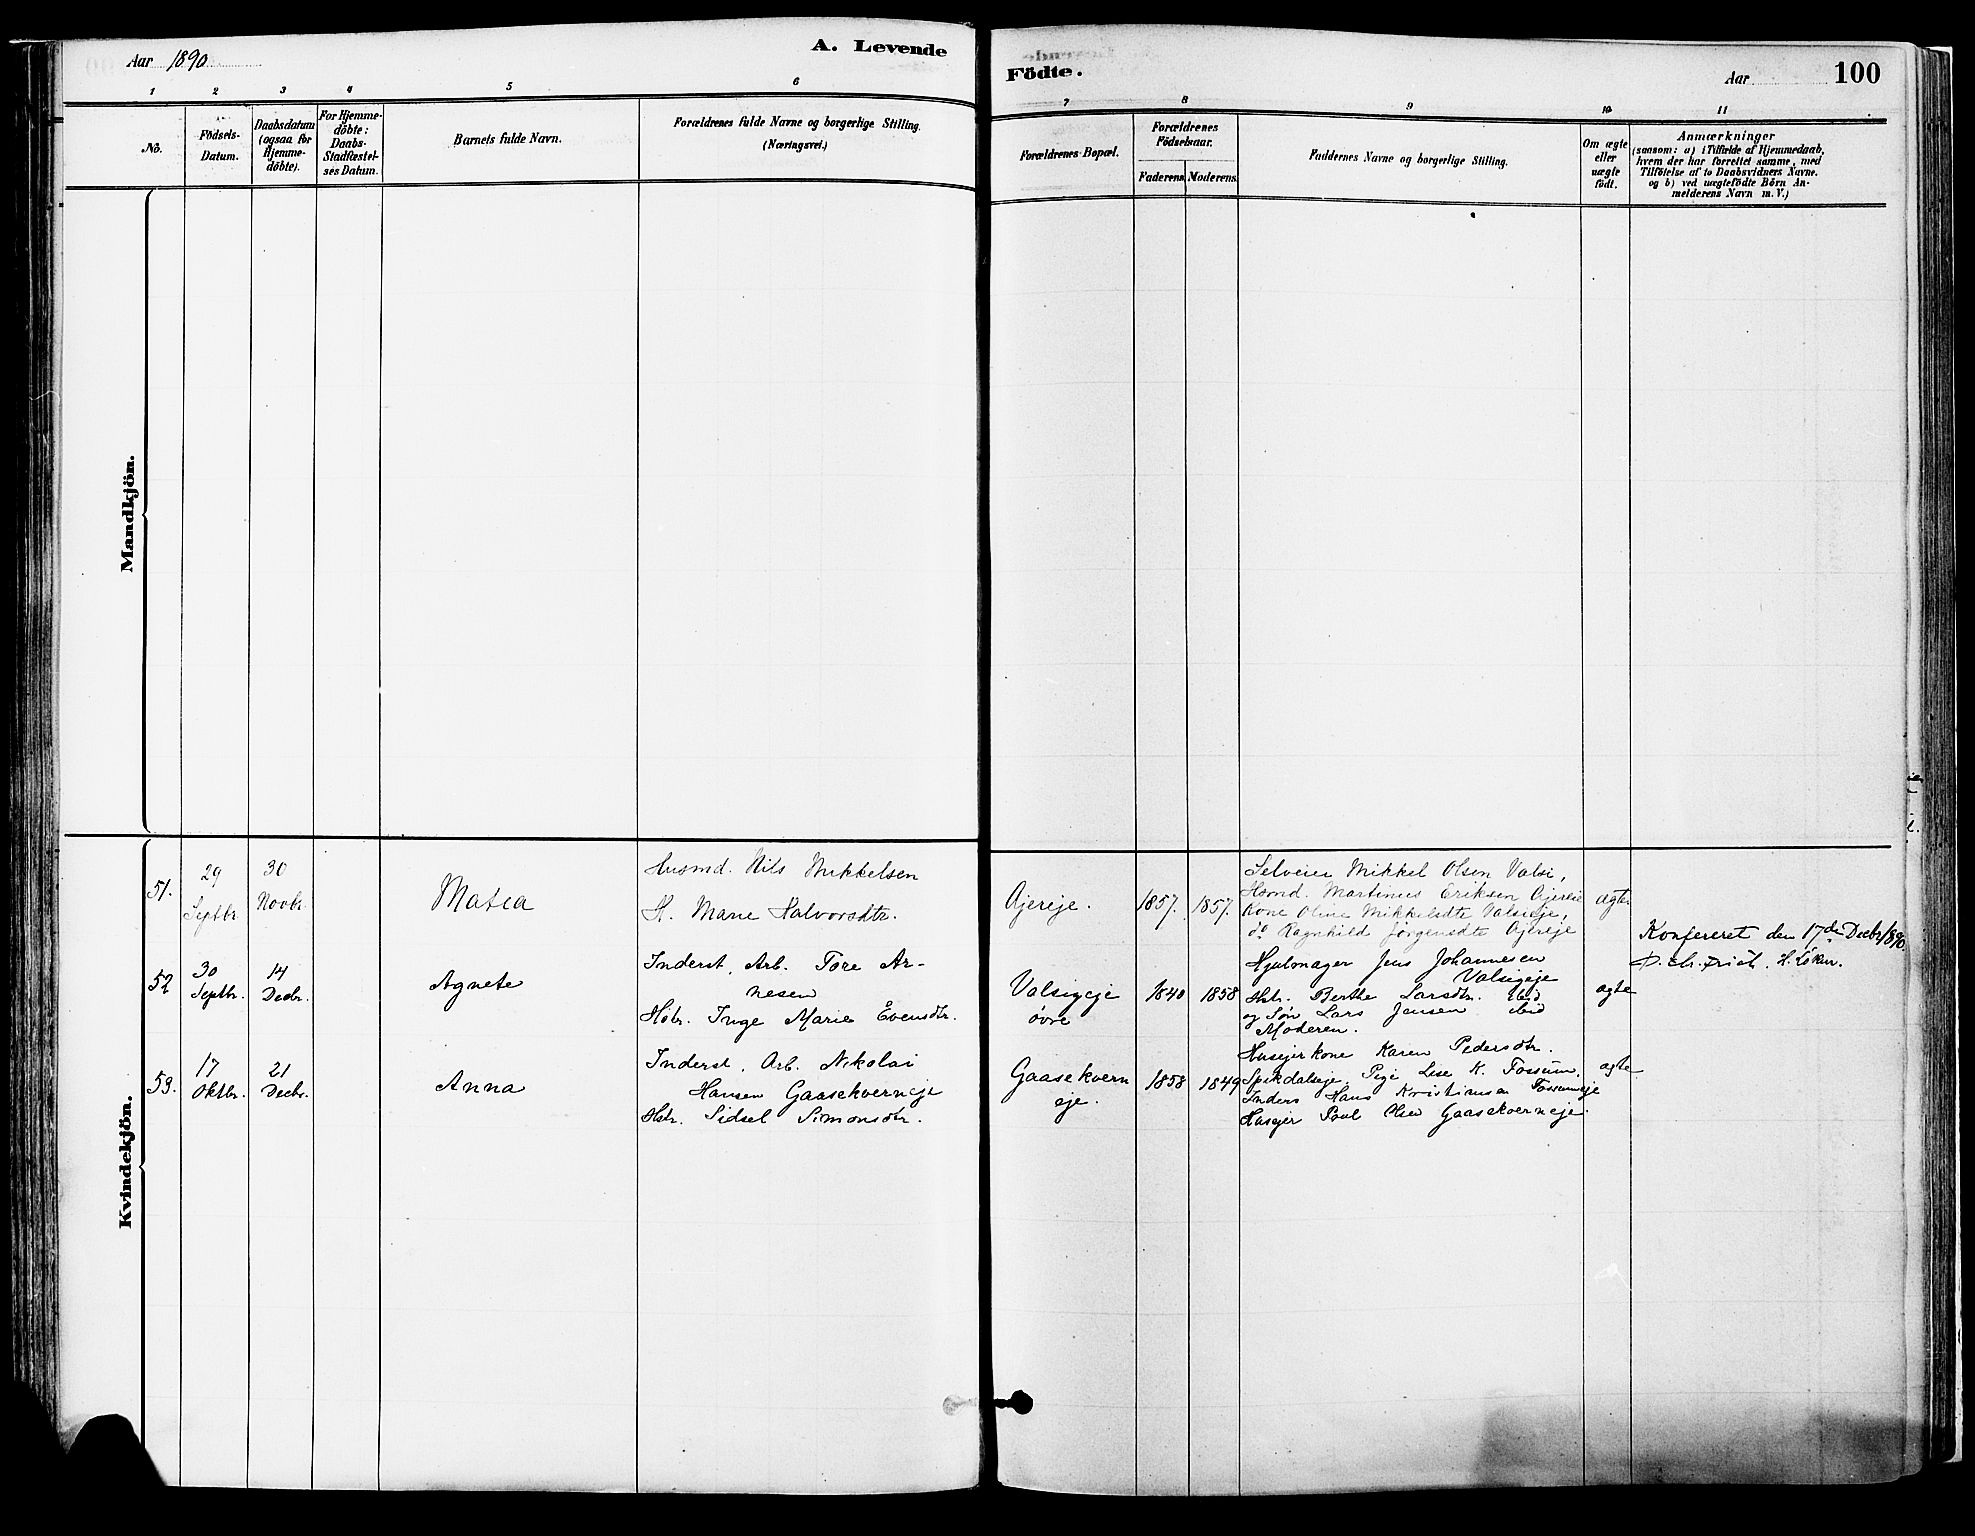 Aar 1890
A. Levende
Födte.
Aar
100
1 2 3 4 5 6
7 8 9 10 11
No.
Födsels-
Datum.
Daabsdatum
(ogsaa for
Hjemme-
döbte).
For Hjemme-
döbte:
Daabs-
Stadfæstel-
ses Datum.
Barnets fulde Navn.
Forældrenes fulde Navne og borgerlige Stilling.
(Næringsvei.)
Forældrenes Bopæl.
Forældrenes
Födselsaar.
Faderens.
Moderens.
Faddernes Navne og borgerlige Stilling.
Om ægte
eller
uægte
födt.
Anmærkninger
(saasom: a) i Tilfælde af Hjemmedaab,
hvem der har forrettet samme, med
Tilföielse af to Daabsvidners Navne.
og b) ved uægtefödte Börn An-
melderens Navn m. V.)
Mandkjön.
Kvindekjön.
51.
29
Septbr.
30
Novbr.
Matea
Husmd. Nils Mikkelsen
H. Marie Halvorsdtr.
Ajereje.
1857.
1857.
Selveier Mikkel Olsen Valsi,
Husmd. Martinus Eriksen Ajereie
Kone Oline Mikkelsdtr Valsieje,
do Ragnhild Jørgensdtr Ajereje
ægte
Konfereret den 17de Decbr 1890
H. Løken.
52
30
Septbr.
14
Decbr.
Agnete
Inderst, Arb. Tore Ar-
nesen
Hstr. Inge Marie Evensdtr.
Valsigeje
øvre
1840
1858
Hjulmager Jens Johannesen
Valsigeje
Hstr. Berthe Larsdtr. ibid
og Søn Lars Jensen ibid
Moderen.
ægte
53.
17
Oktbr.
21
Decbr.
Anna
Inderst, Arb. Nikolai
Hansen Gaasekverneje
Hstr. Sidsel Simonsdtr.
Gaasekvern
eje.
1858
1849
Husejerkone Karen Pedersdtr.
Spikdalseje, Pige Lise K. Fossum,
Inders Hans Kristiansen Fossumeje
Husejer Poul Olsen Gaasekverneje.
ægte